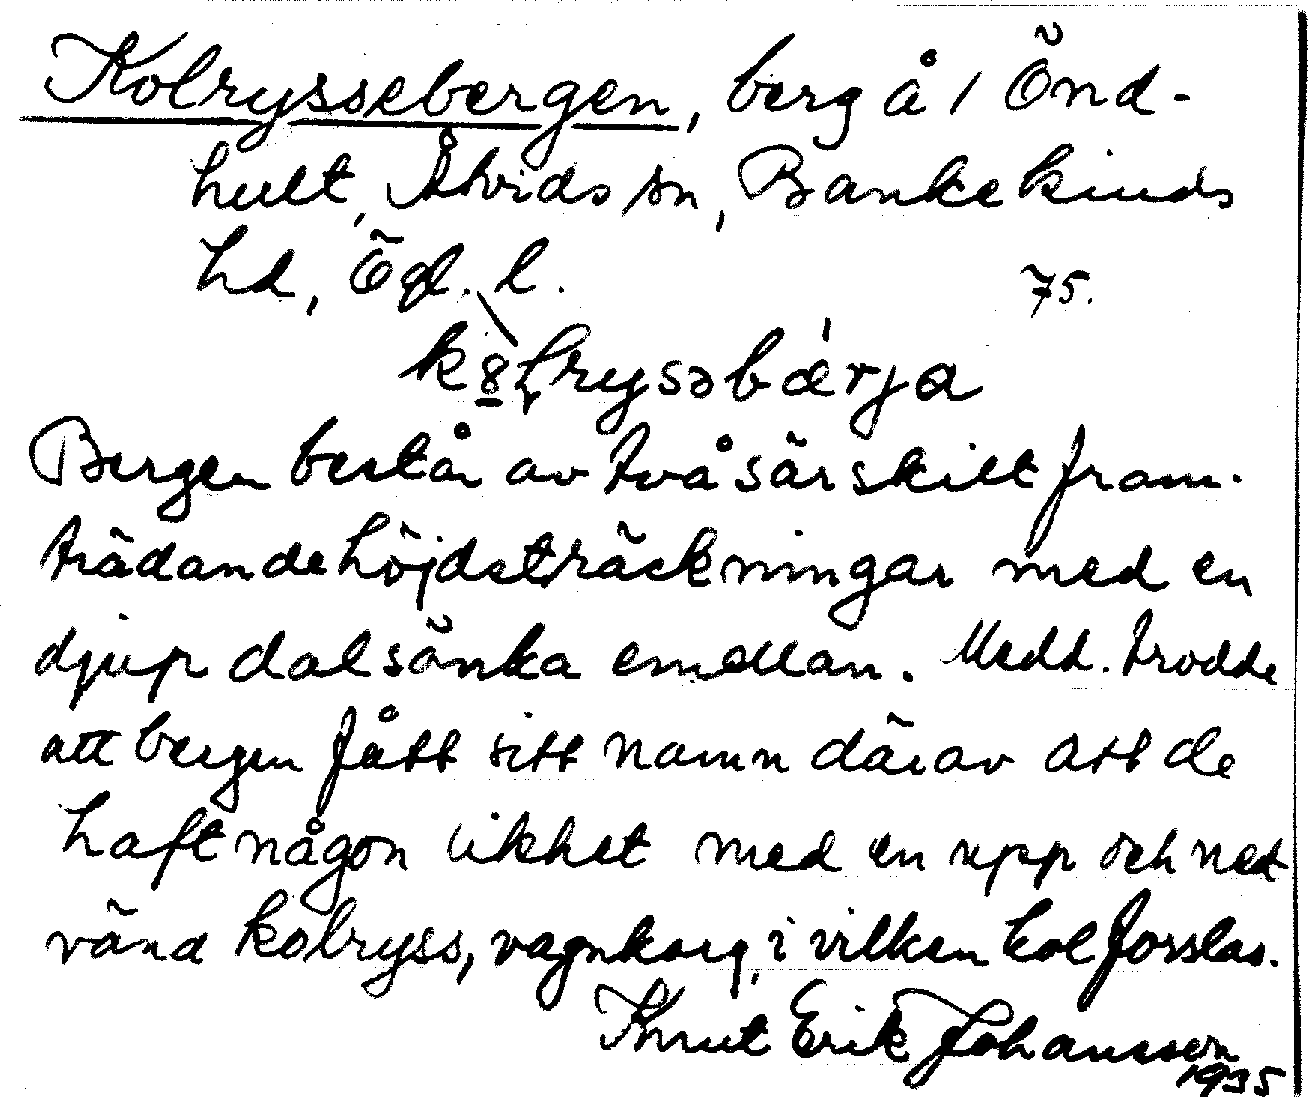 Kolryssebergen, berg å 1 Önd-
hult, Åtvids sn, Bankekinds
hd, Ögl. l.
75.
Bergen består av två särskilt fram-
trädande höjdsträckningar med en
djup dalsänka emellan. Medd. trodde
att bergen fått sitt namn därav att de
haft någon likhet med en upp och ned
vänd kolryss, vagnkorg, i vilken kol forslas.
Knut Erik Johansson
1935